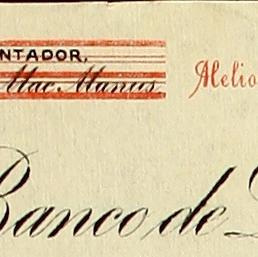 NTADOR.
Mac. Manus
Melio
Banco de